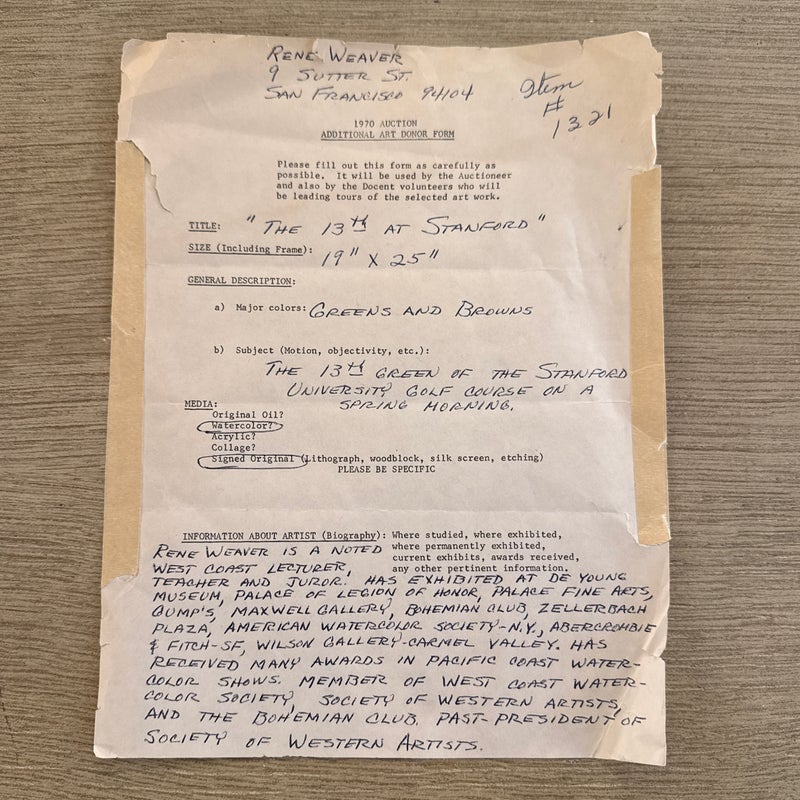 RENE WEAVER
9 SUTTER ST.
SAN FRANCISCO 94104
Item
#
1321
1970 AUCTION
ADDITIONAL ART DONOR FORM
Please fill out this form as carefully as
possible. It will be used by the Auctioneer
and also by the Docent volunteers who will
be leading tours of the selected art work.
TITLE: "THE 13th AT STANFORD"
SIZE (Including Frame): 19" X 25"
GENERAL DESCRIPTION:
a) Major colors: GREENS AND BROWNS
b) Subject (Motion, objectivity, etc.):
THE 13th GREEN OF THE STANFORD
UNIVERSITY GOLF COURSE ON A
SPRING MORNING.
MEDIA:
Original Oil?
Watercolor?
Acrylic?
Collage?
Signed Original (Lithograph, woodblock, silk screen, etching)
PLEASE BE SPECIFIC
INFORMATION ABOUT ARTIST (Biography): Where studied, where exhibited,
where permanently exhibited,
current exhibits, awards received,
any other pertinent information.
RENE WEAVER IS A NOTED
WEST COAST LECTURER,
TEACHER AND JUROR. HAS EXHIBITED AT DE YOUNG
MUSEUM, PALACE OF LEGION OF HONOR, PALACE FINE ARTS,
GUMP'S, MAXWELL GALLERY, BOHEMIAN CLUB, ZELLERBACH
PLAZA, AMERICAN WATERCOLOR SOCIETY-N.Y., ABERCROMBIE
& FITCH-SF, WILSON GALLERY-CARMEL VALLEY. HAS
RECEIVED MANY AWARDS IN PACIFIC COAST WATER-
COLOR SHOWS. MEMBER OF WEST COAST WATER-
COLOR SOCIETY, SOCIETY OF WESTERN ARTISTS,
AND THE BOHEMIAN CLUB. PAST-PRESIDENT OF
SOCIETY OF WESTERN ARTISTS.